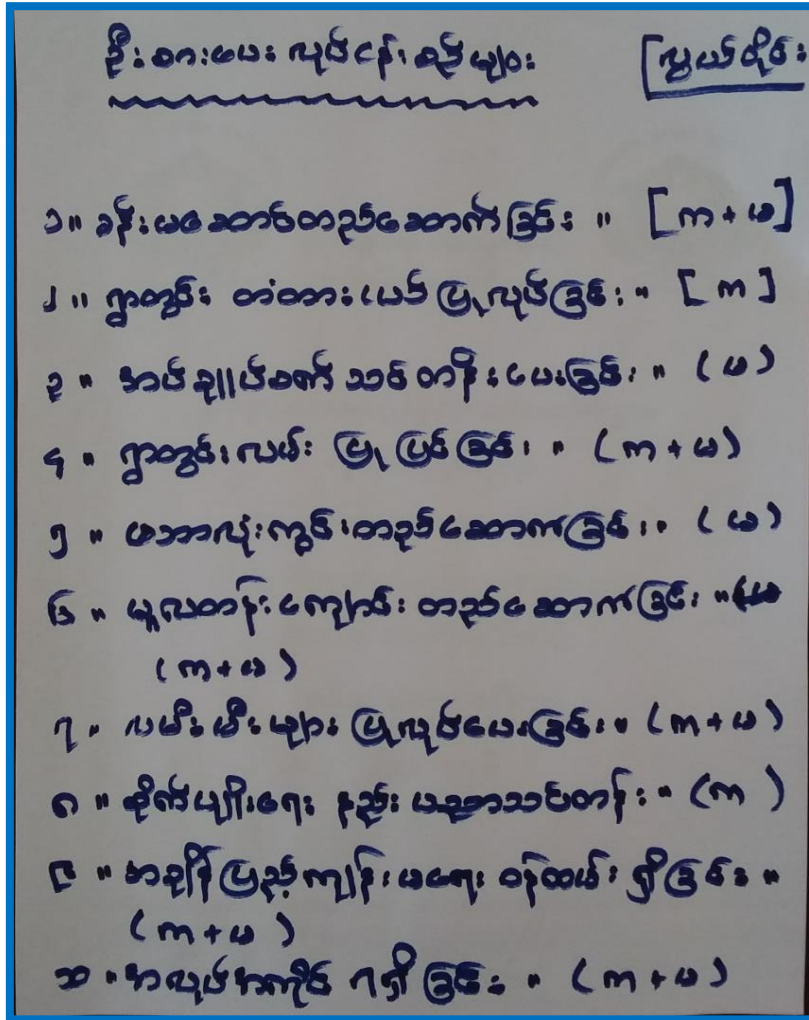 ဦးစားပေး လုပ်ငန်းစဉ်များ [လွယ်တိုင်း
၁။ ခန်းမဆောင်တည်ဆောက်ခြင်း။ [က+မ]
၂။ ရွာတွင်း တံတားပေါ် ပြုလုပ်ခြင်း။ [က]
၃။ အပ်ချုပ်စက် သင်တန်းပေးခြင်း။ (မ)
၄။ ရွာတွင်းလမ်း ပြုပြင်ခြင်း။ (က+မ)
၅။ ဘောလုံးကွင်းတည်ဆောက်ခြင်း။ (မ)
၆။ မူလတန်းကျောင်း တည်ဆောက်ခြင်း။
(က+မ)
၇။ လမ်းမီးများ ပြုလုပ်ပေးခြင်း။ (က+မ)
၈။ စိုက်ပျိုးရေး နည်းပညာသင်တန်း။ (က)
၉။ အချိန်ပြည့်ကျန်းမာရေး ဝန်ထမ်းရှိခြင်း။
(က+မ)
၁၀။ အလုပ်အကိုင် ရရှိခြင်း။ (က+မ)